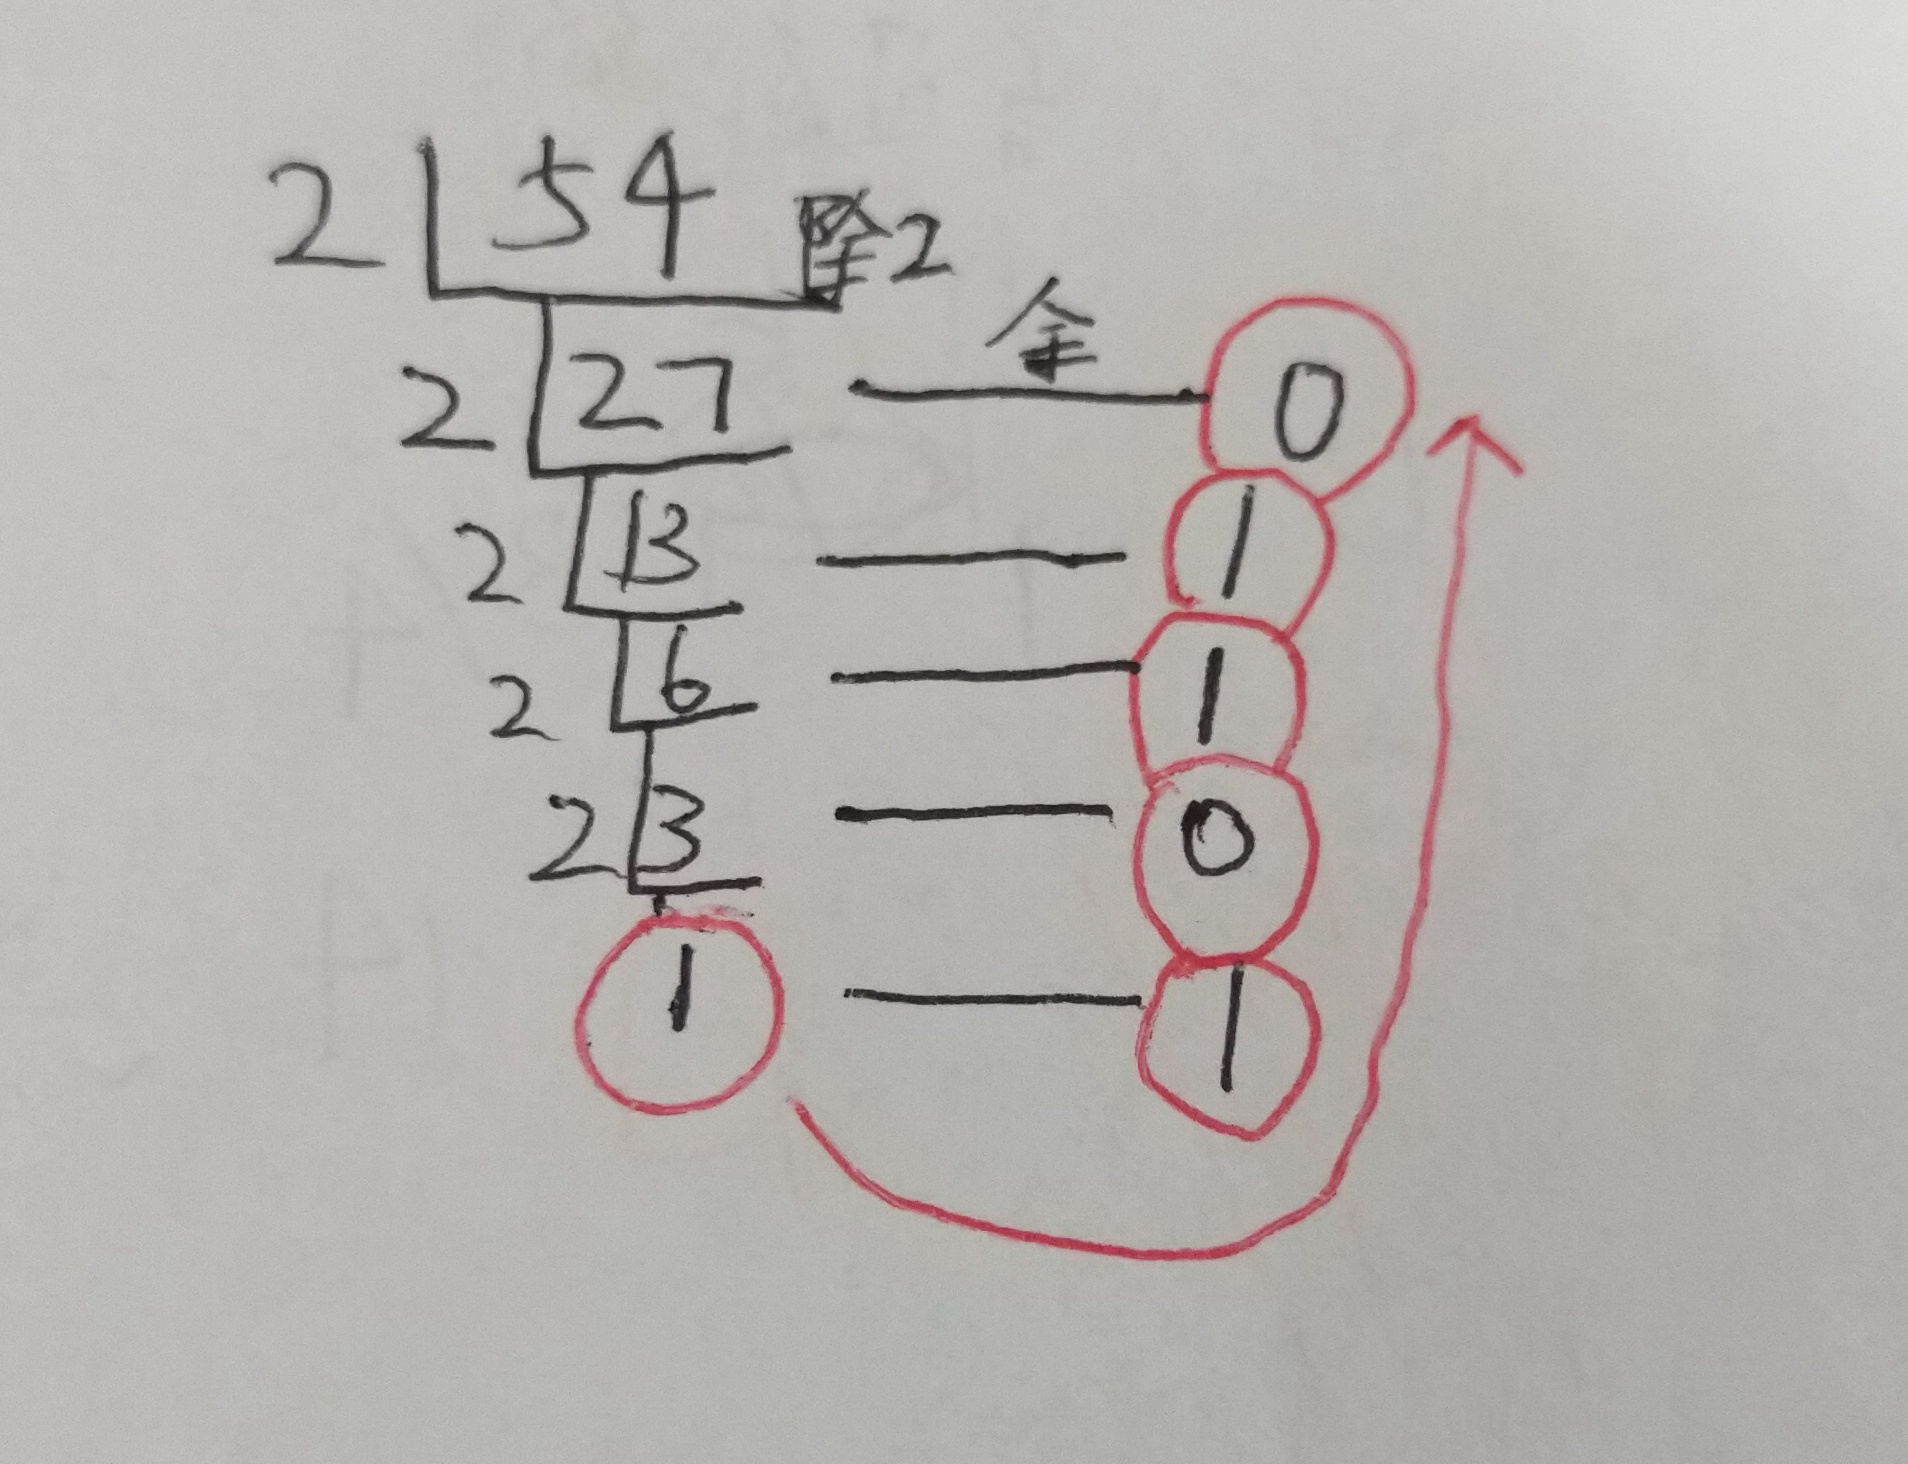 2 54 除2
2 27 余 0
2 13 1
2 6 1
2 3 0
1 1